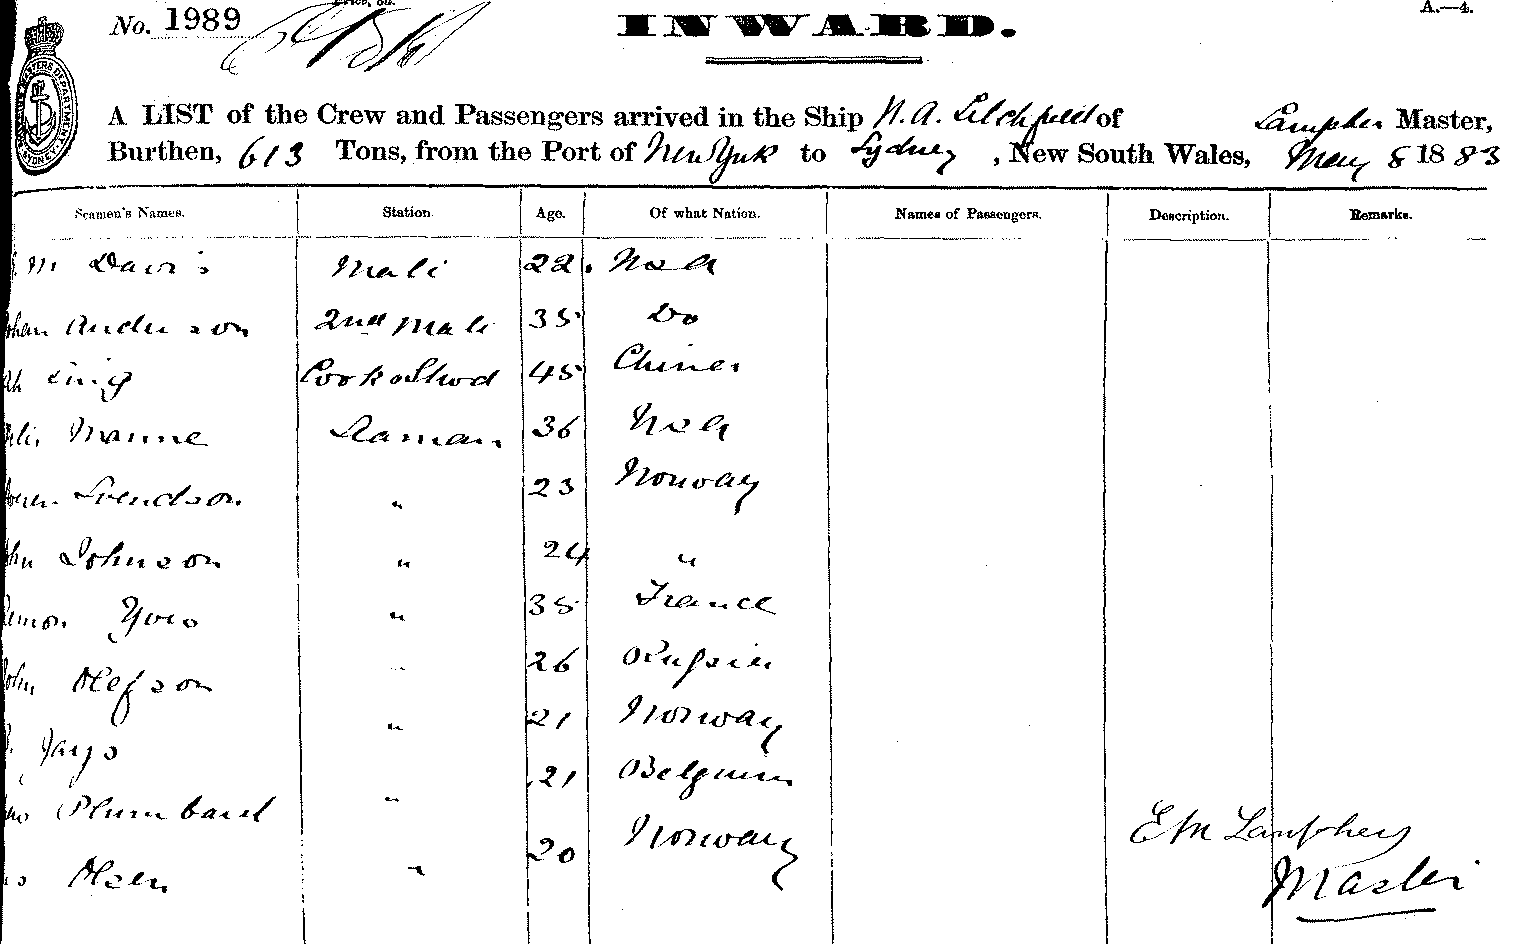 No. 1989
INWARD.
A.—4.
A LIST of the Crew and Passengers arrived in the Ship N. A. Litchfield of Lampher Master,
Burthen, 613 Tons, from the Port of New York to Sydney, New South Wales, May 8 1883
Seamen's Names. Station. Age. Of what Nation. Names of Passengers. Description. Remarks.
M Davis Mate 22 USA
Johan Anderson 2nd Mate 35 Do
Ah Sing Cook & Stwd 45 China
Manne Seaman 36 USA
Svendson " 23 Norway
John Johnson " 24 "
Simon Yvos " 35 France
John Olefson " 26 Russia
Jays " 21 Norway
Plumbard " 21 Belgium
Olsen " 20 Norway
E M Lamphey
Master